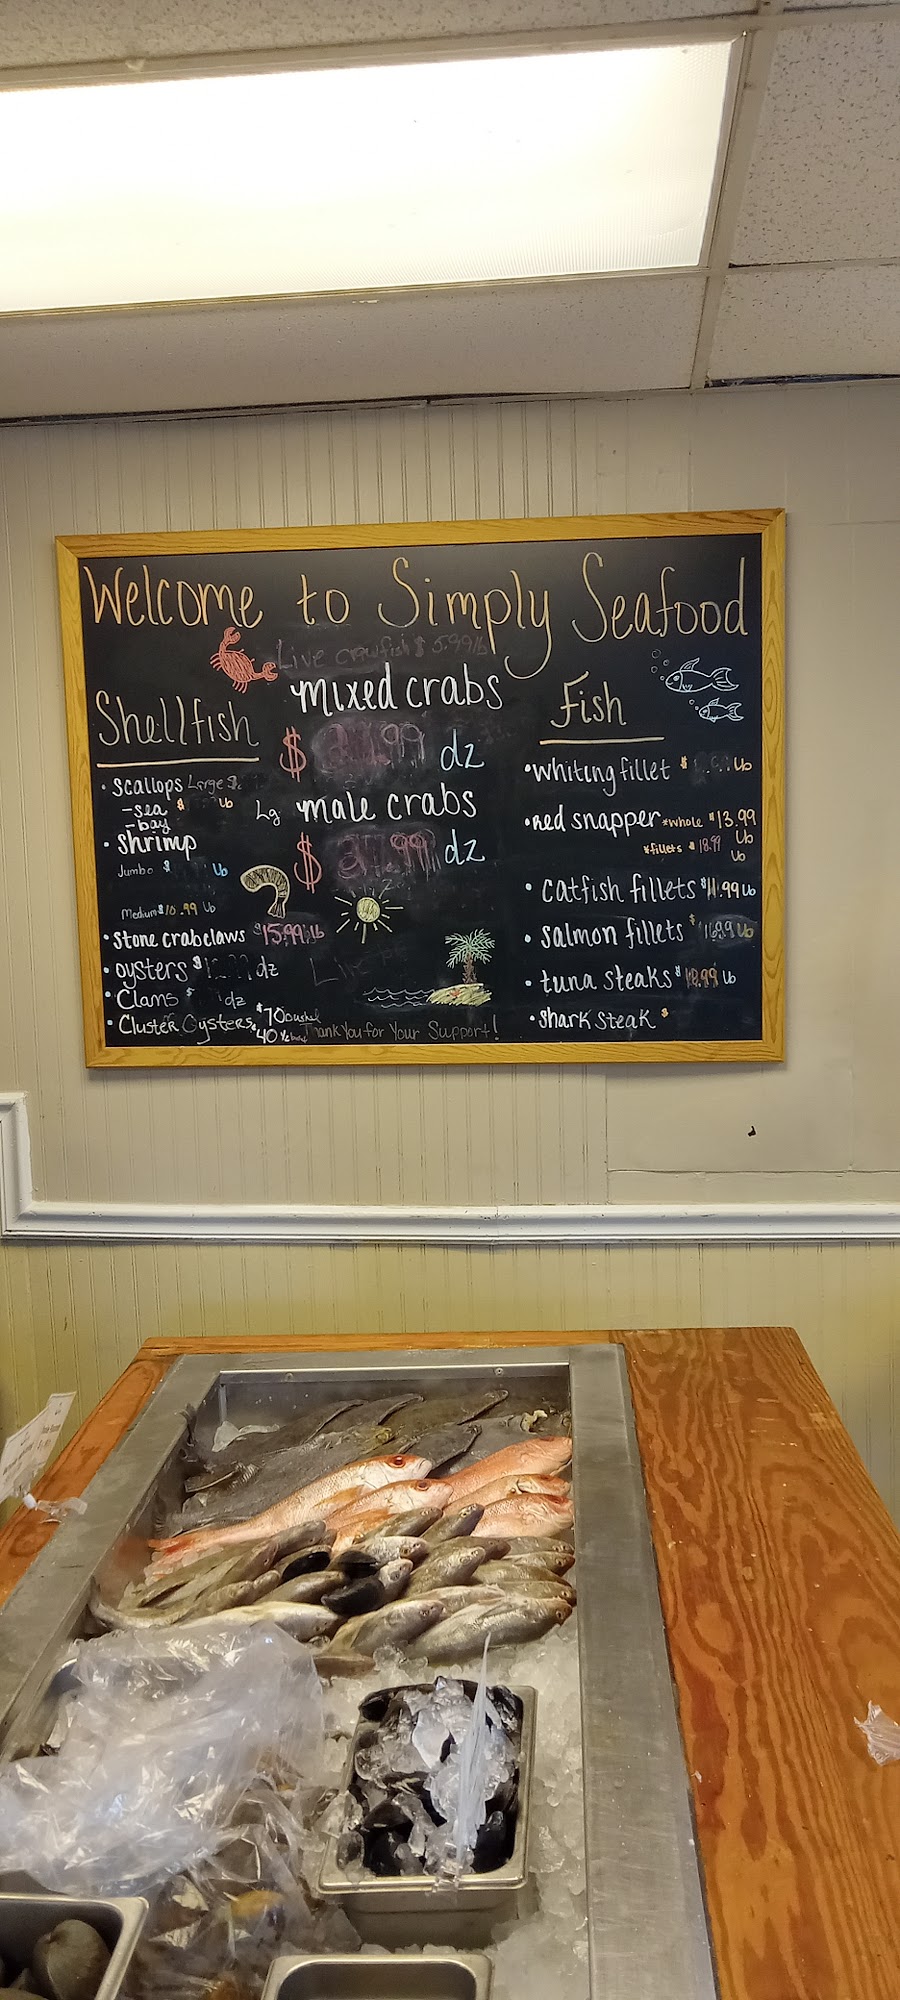 Welcome to Simply Seafood
Live crawfish $ 5.99 lb
mixed crabs
$ dz
Lg male crabs
$ 31.99 dz
Shellfish
• Scallops Large $
- sea $ Lb
- bay
• Shrimp
Jumbo $ Lb
Medium $10.99 Lb
• Stone crab claws $15.99 lb
• oysters $ dz
• Clams $ dz
• Cluster Oysters $70 Bushel
$40
Live
Thank You for Your Support!
Fish
• whiting fillet $ Lb
• Red snapper *whole $13.99 Lb
*fillets $18.99 Lb
• catfish fillets $11.99 Lb
• salmon fillets $16.99 Lb
• tuna steaks $18.99 Lb
• Shark Steak $